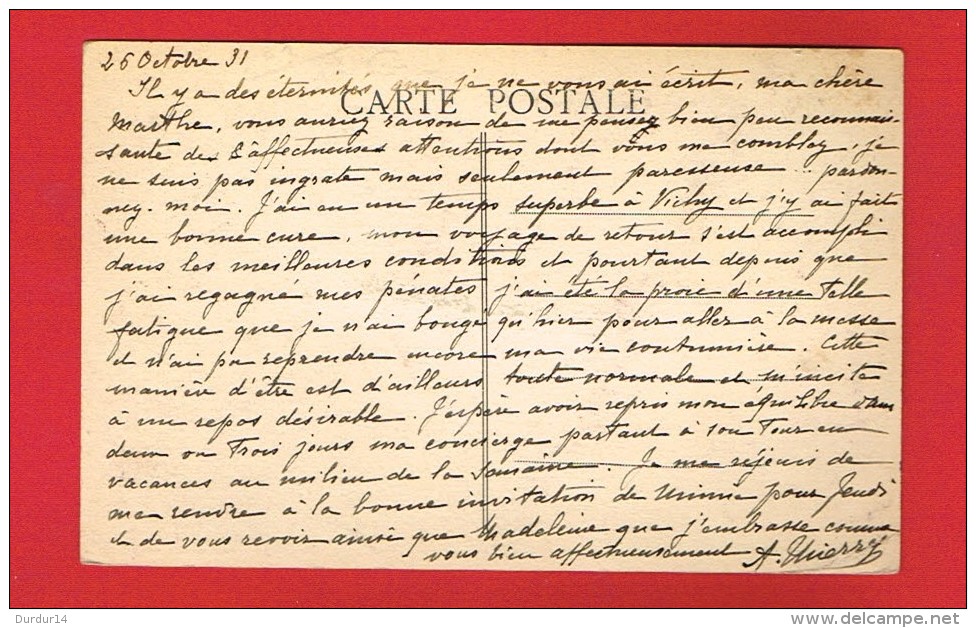 26 Octobre 31
Il y a des éternités que je ne vous ai écrit, ma chère
CARTE POSTALE
Marthe, vous auriez raison de me penser bien peu reconnais-
sante des affectueuses attentions dont vous me comblez, je
ne suis pas ingrate mais seulement paresseuse.. pardon-
nez-moi. J'ai eu un temps superbe à Vichy et j'y ai fait
une bonne cure, mon voyage de retour s'est accompli
dans les meilleures conditions et pourtant depuis que
j'ai regagné mes pénates j'ai été la proie d'une telle
fatigue que je n'ai bougé qu'hier pour aller à la messe
et n'ai pu reprendre encore ma vie coutumière. Cette
manière d'être est d'ailleurs toute normale et m'incite
à un repos désirable. J'espère avoir repris mon équilibre dans
deux ou trois jours ma concierge partant à son tour en
vacances au milieu de la semaine. Je me réjouis de
me rendre à la bonne invitation de Minnie pour Jeudi
et de vous revoir ainsi que Madeleine que j'embrasse comme
vous bien affectueusement A. Thierry
Durdur14
www.delcampe.net